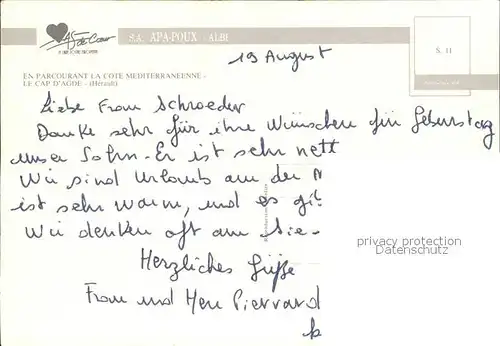 As de Cœur
S.A. APA-POUX - ALBI
19 August
S. 11
EN PARCOURANT LA COTE MEDITERRANEENNE -
LE CAP D'AGDE - (Hérault)
Liebe Frau Schroeder
Danke sehr für ihre Wünschen für Geburstag
unser Sohn - Er ist sehr nett
Wir sind Urlaub am der M
ist sehr warm, und es gi
Wir denken oft am Sie -
privacy protection
Datenschutz
Herzliches Grüße
Frau und Herr Pierrard